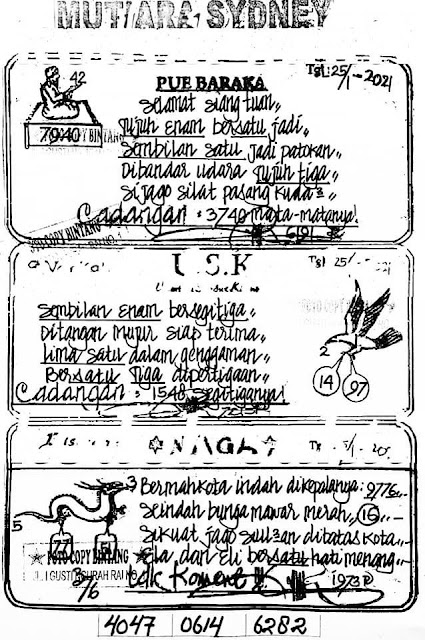 MUTIARA SYDNEY
PUE BARAKA
Tgl: 25/1-2021
42
7040
Selamat siang tuan,,
Tujuh enam bersatu jadi,
Sembilan satu jadi patokan,,
Dibandar udara tujuh tiga,,
Si jago silat pasang kuda²,,
Cadangan : 3740 mata-matanya!
U.S.K
Tgl 25/
Sembilan enam bersegitiga,,
Ditangan mujur siap terima
lima satu dalam genggaman,,
Bersatu tiga dipertigaan,,
Cadangan : 1540 segitiganya!
2
14 97
NAGA
3
5
77
3/6
Bermahkota indah dikepalanya: 9776,,
Seindah bunga mawar merah, 16
Sikuat jago
diatas kota
Ela dan eli bersatu hati menang
FOTO COPY BINTANG
1973 R
4047 0614 6282